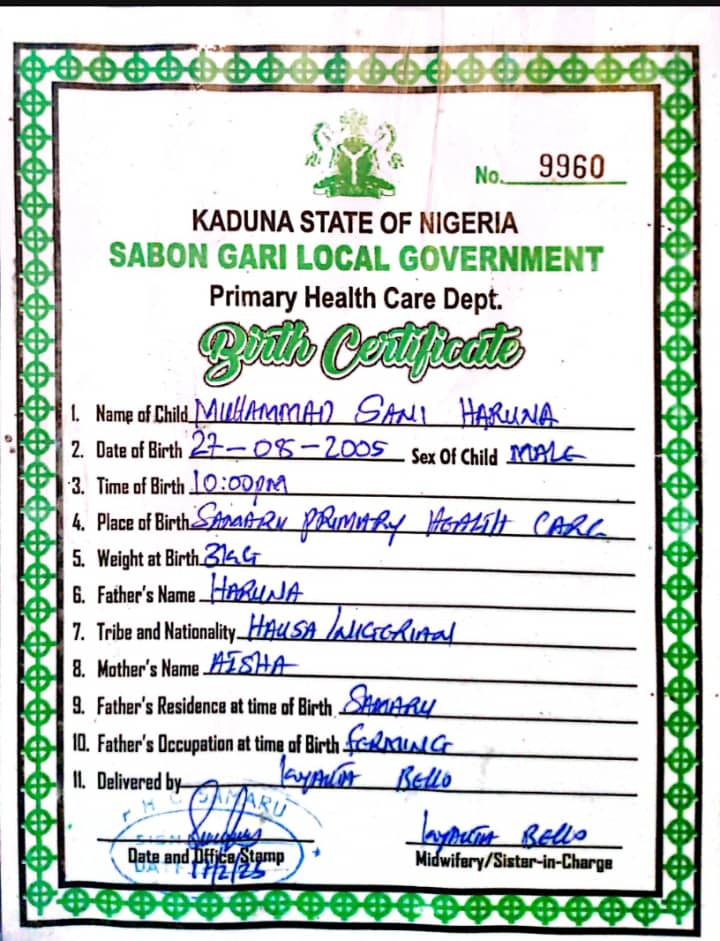 No. 9960
KADUNA STATE OF NIGERIA
SABON GARI LOCAL GOVERNMENT
Primary Health Care Dept.
Birth Certificate
1. Name of Child MUHAMMAD SANI HARUNA
2. Date of Birth 27-08-2005 Sex Of Child MALE
3. Time of Birth 10:00pm
4. Place of Birth SAMARU PRIMARY HEALTH CARE
5. Weight at Birth 3KG
6. Father's Name HARUNA
7. Tribe and Nationality HAUSA / NIGERIAN
8. Mother's Name AISHA
9. Father's Residence at time of Birth SAMARU
10. Father's Occupation at time of Birth FERMING
11. Delivered by BELLO
P H C SAMARU
SIGN
DATE
BELLO
Date and Office Stamp
Midwifery/Sister-in-Charge